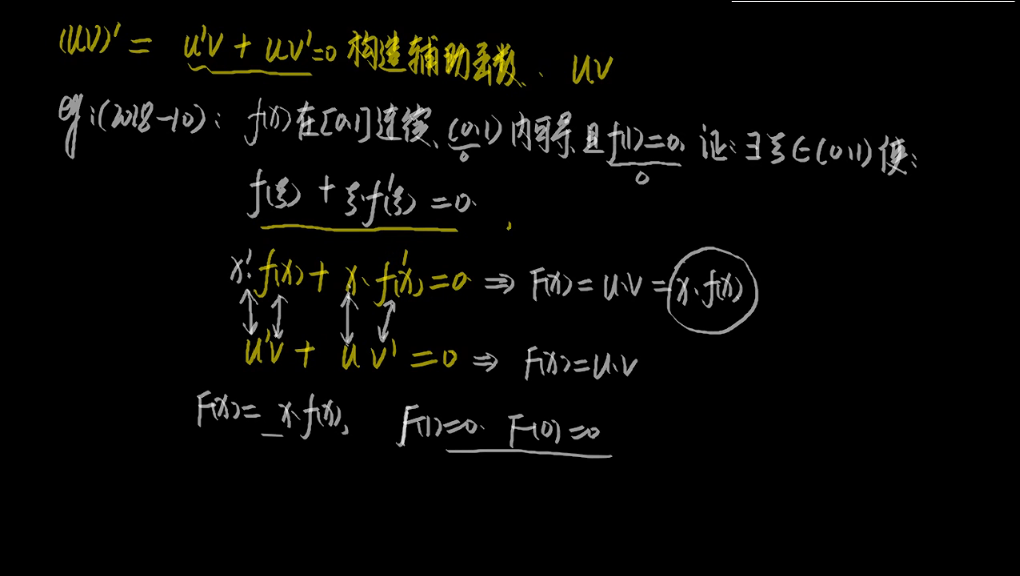 (UV)' = U'V + UV' = 0 构造辅助函数、 UV
eg:(2018-10): f(x)在[0,1]连续、(0,1)内可导且f(1)=0. 证:∃ξ∈(0,1)使:
0 0
f(ξ) + ξf'(ξ) = 0.
x'·f(x) + x·f'(x) = 0 ⇒ F(x) = U·V = x·f(x)
U'V + UV' = 0 ⇒ F(x) = U·V
F(x) = x·f(x), F(1)=0. F(0)=0